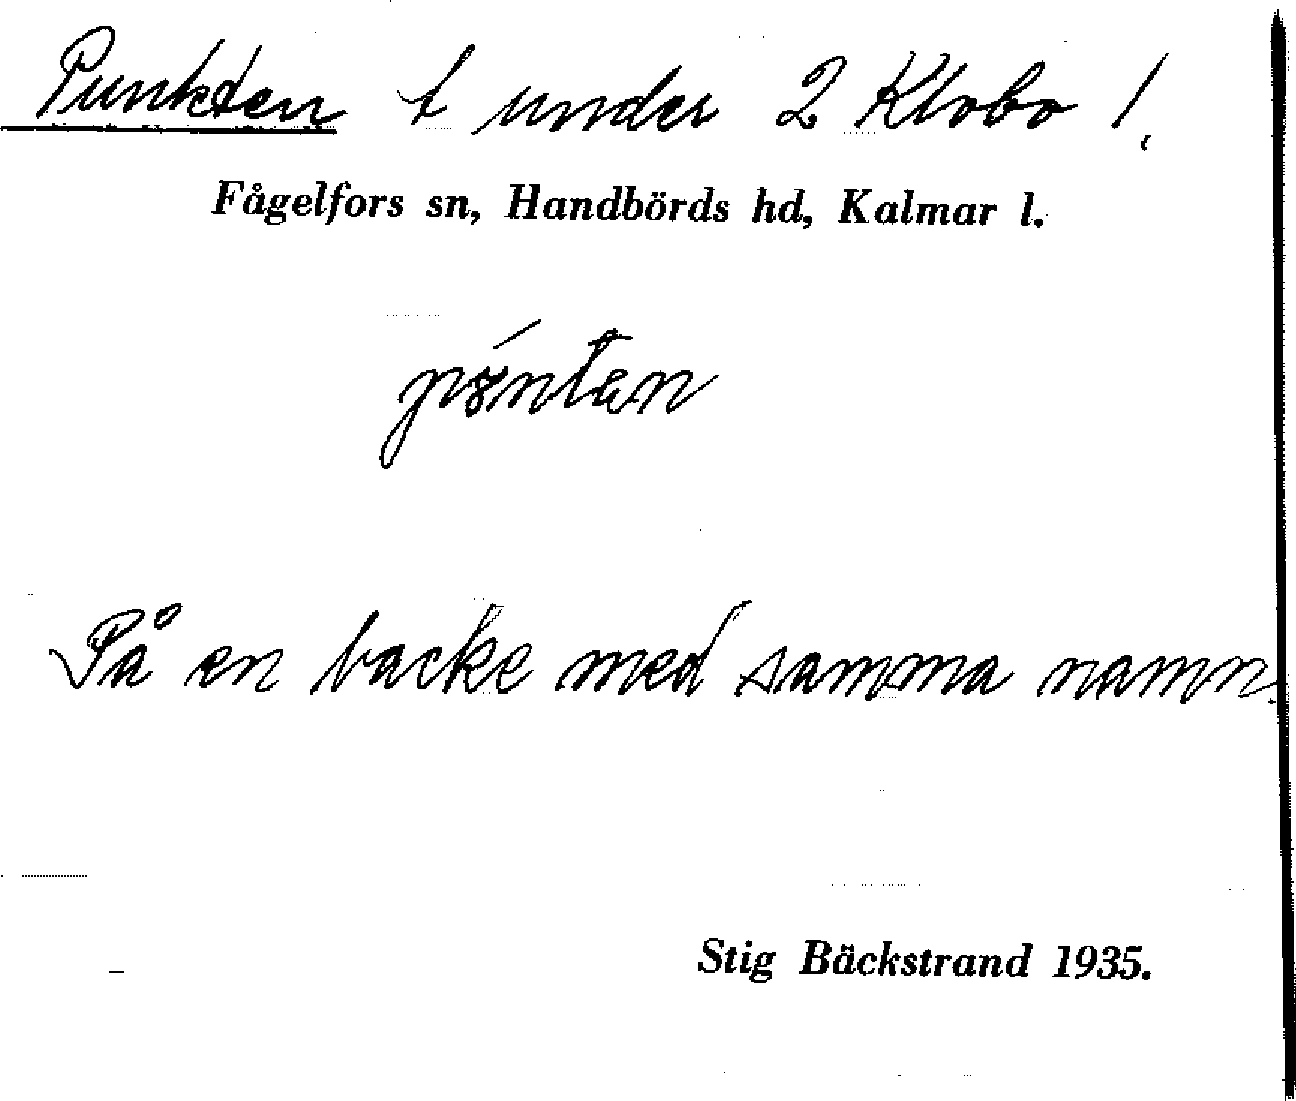 Punkten t under 2 Klobo /,
Fågelfors sn, Handbörds hd, Kalmar l.
På en backe med samma namn.
Stig Bäckstrand 1935.